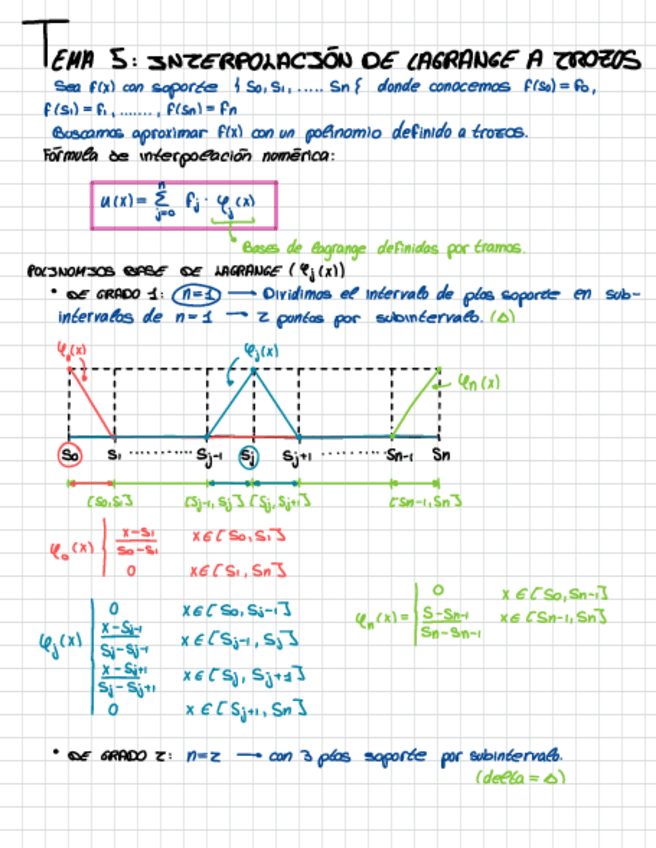 TEMA 5: INTERPOLACIÓN DE LAGRANGE A TROZOS
Sea f(x) con soporte {S0, S1, ..... Sn} donde conocemos f(S0) = f0,
f(S1) = f1, ......., f(Sn) = fn
Buscamos aproximar f(x) con un polinomio definido a trozos.
Fórmula de interpolación numérica:
u(x) = Σ_{j=0}^{n} fj · φj(x)
Bases de lagrange definidas por tramos.
POLINOMIOS BASE DE LAGRANGE (φj(x))
• DE GRADO 1: n=1 → Dividimos el intervalo de ptos soporte en sub-
intervalos de n=1 → 2 puntos por subintervalo. (Δ)
φ0(x) φj(x) φn(x)
S0 S1 .......... Sj-1 Sj Sj+1 .......... Sn-1 Sn
[S0,S1] [Sj-1, Sj] [Sj, Sj+1] [Sn-1, Sn]
φ0(x) | (x-S1)/(S0-S1) x∈[S0, S1]
0 x∈[S1, Sn]
φn(x) = | 0 x∈[S0, Sn-1]
(S-Sn-1)/(Sn-Sn-1) x∈[Sn-1, Sn]
φj(x) | 0 x∈[S0, Sj-1]
(x-Sj-1)/(Sj-Sj-1) x∈[Sj-1, Sj]
(x-Sj+1)/(Sj-Sj+1) x∈[Sj, Sj+1]
0 x∈[Sj+1, Sn]
• DE GRADO 2: n=2 → con 3 ptos soporte por subintervalo.
(delta = Δ)